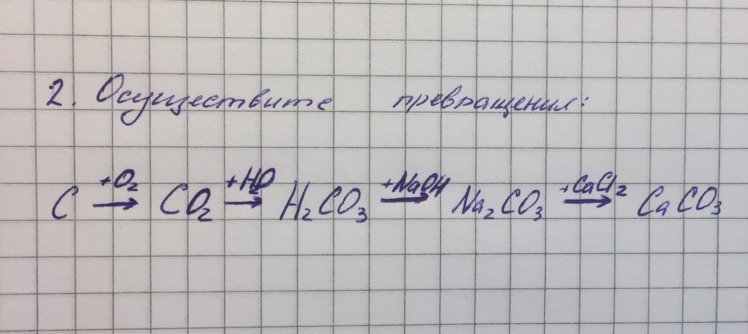 2. Осуществите превращения:
C +O₂ → CO₂ +H₂O → H₂CO₃ +NaOH → Na₂CO₃ +CaCl₂ → CaCO₃